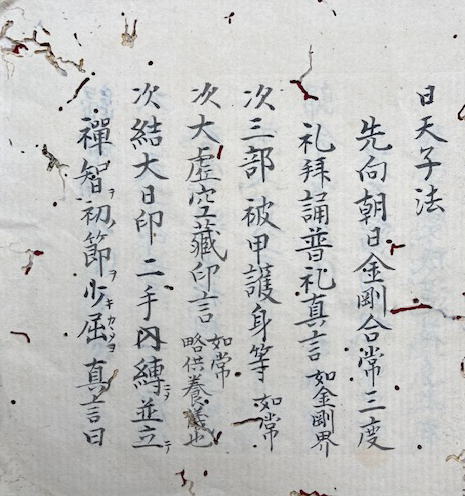 日天子法
先向朝日金剛合常三度
礼拝誦普礼真言 如金剛界
次三部 被甲護身等 如常
次大虚空藏印言 如常
略供養儀也
次結大日印 二手内縛並立テ
禪智初節ヲ少屈 真言曰